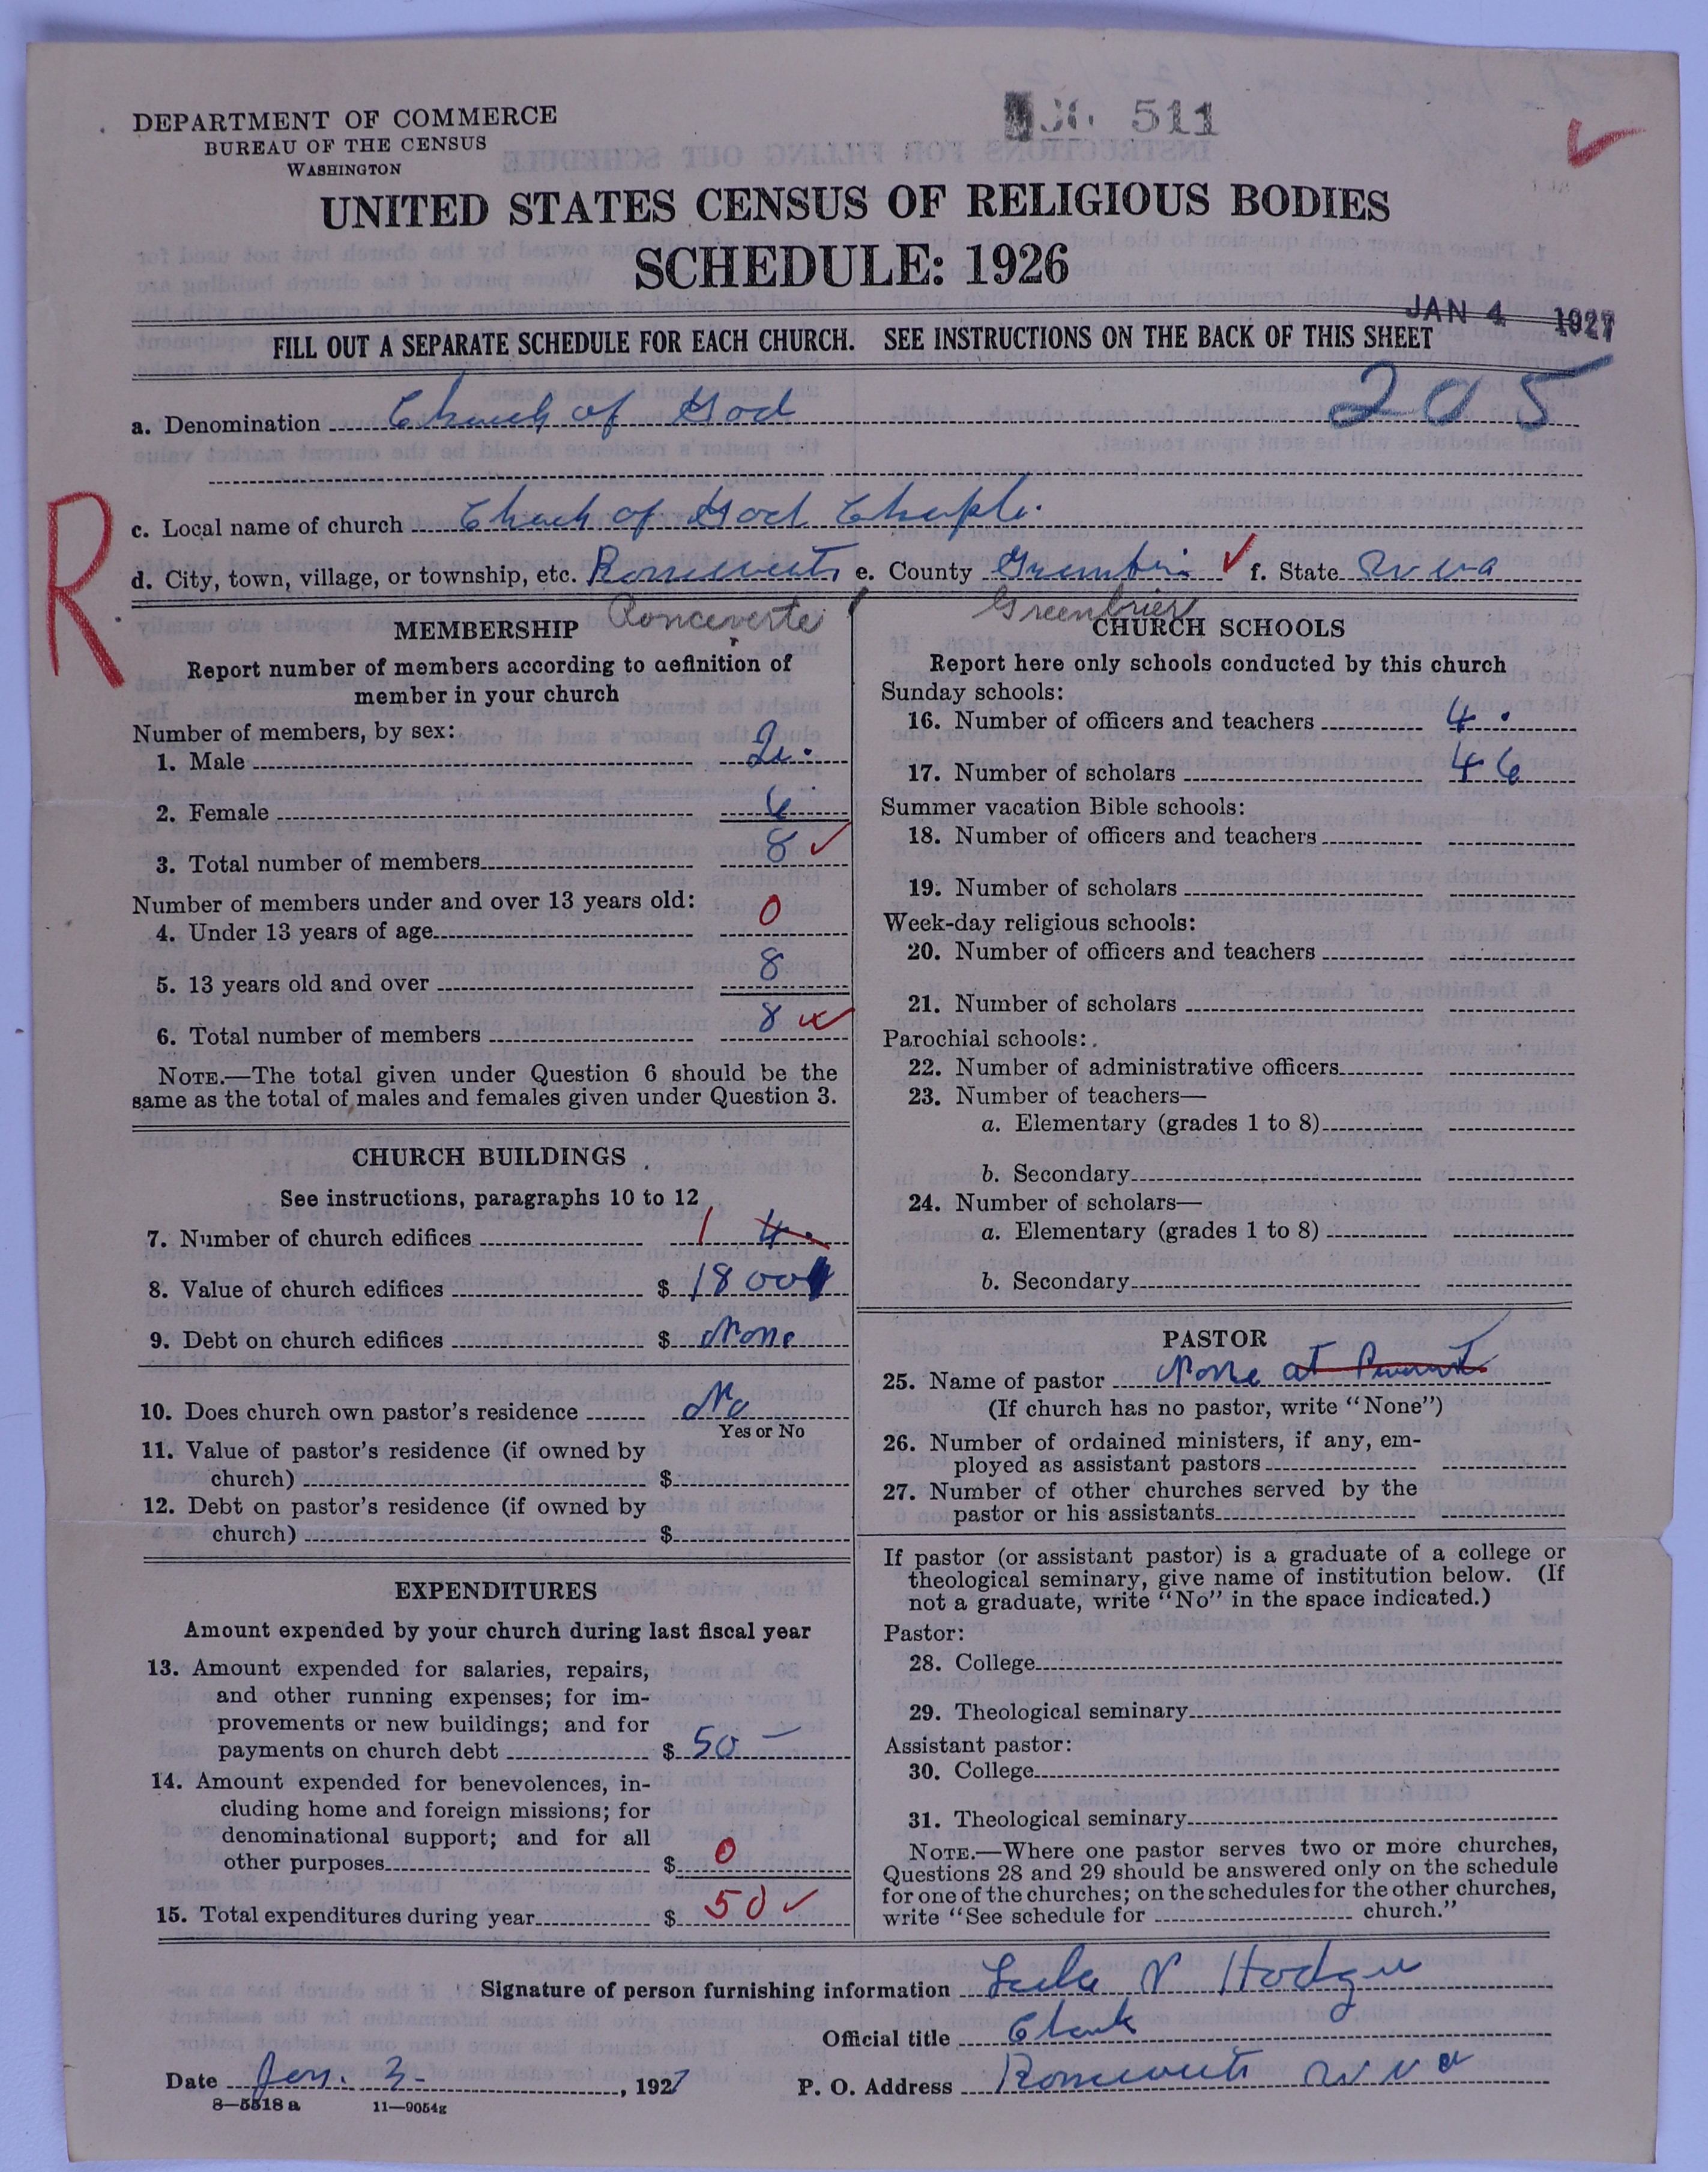 DEPARTMENT OF COMMERCE
BUREAU OF THE CENSUS
WASHINGTON
511
UNITED STATES CENSUS OF RELIGIOUS BODIES
SCHEDULE: 1926
JAN 4 1927
FILL OUT A SEPARATE SCHEDULE FOR EACH CHURCH. SEE INSTRUCTIONS ON THE BACK OF THIS SHEET
a. Denomination Church of God 205
R
c. Local name of church Church of God Chaple.
d. City, town, village, or township, etc. Ronceverte e. County Greenbrier f. State W va
Ronceverte Greenbrier
MEMBERSHIP
Report number of members according to definition of
member in your church
Number of members, by sex:
1. Male 2.
2. Female 6
3. Total number of members 8
Number of members under and over 13 years old:
4. Under 13 years of age 0
5. 13 years old and over 8
6. Total number of members 8
NOTE.—The total given under Question 6 should be the
same as the total of males and females given under Question 3.
CHURCH BUILDINGS
See instructions, paragraphs 10 to 12
7. Number of church edifices 1 4.
8. Value of church edifices $ 1800
9. Debt on church edifices $ None
10. Does church own pastor's residence No
Yes or No
11. Value of pastor's residence (if owned by
church) $
12. Debt on pastor's residence (if owned by
church) $
EXPENDITURES
Amount expended by your church during last fiscal year
13. Amount expended for salaries, repairs,
and other running expenses; for im-
provements or new buildings; and for
payments on church debt $ 50 —
14. Amount expended for benevolences, in-
cluding home and foreign missions; for
denominational support; and for all
other purposes $ 0
15. Total expenditures during year $ 50
CHURCH SCHOOLS
Report here only schools conducted by this church
Sunday schools:
16. Number of officers and teachers 4.
17. Number of scholars 46
Summer vacation Bible schools:
18. Number of officers and teachers
19. Number of scholars
Week-day religious schools:
20. Number of officers and teachers
21. Number of scholars
Parochial schools:
22. Number of administrative officers
23. Number of teachers—
a. Elementary (grades 1 to 8)
b. Secondary
24. Number of scholars—
a. Elementary (grades 1 to 8)
b. Secondary
PASTOR
25. Name of pastor None at Present
(If church has no pastor, write "None")
26. Number of ordained ministers, if any, em-
ployed as assistant pastors
27. Number of other churches served by the
pastor or his assistants
If pastor (or assistant pastor) is a graduate of a college or
theological seminary, give name of institution below. (If
not a graduate, write "No" in the space indicated.)
Pastor:
28. College
29. Theological seminary
Assistant pastor:
30. College
31. Theological seminary
NOTE.—Where one pastor serves two or more churches,
Questions 28 and 29 should be answered only on the schedule
for one of the churches; on the schedules for the other churches,
write "See schedule for church."
Signature of person furnishing information Lula N Hodge
Official title Clerk
Date Jan. 3- , 1927 P. O. Address Ronceverte W Va
8—5518 a 11—9054g